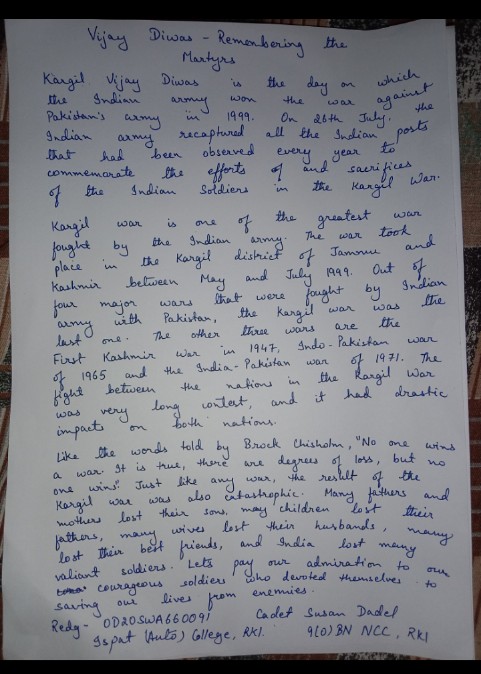 Vijay Diwas - Remembering the
Martyrs
Kargil Vijay Diwas is the day on which
the Indian army won the war against
Pakistan's army in 1999. On 26th July, the
Indian army recaptured all the Indian posts
that had been observed every year to
commemorate the efforts of and sacrifices
of the Indian Soldiers in the Kargil War.
Kargil war is one of the greatest war
fought by the Indian army. The war took
place in the Kargil district of Jammu and
Kashmir between May and July 1999. Out of
four major wars that were fought by Indian
army with Pakistan, the Kargil war was the
last one. The other three wars are the
First Kashmir War in 1947, Indo-Pakistan war
of 1965 and the India-Pakistan war of 1971. The
fight between the nations in the Kargil War
was very long contest, and it had drastic
impacts on both nations.
Like the words told by Brock Chisholm, "No one wins
a war. It is true, there are degrees of loss, but no
one wins". Just like any war, the result of the
Kargil war was also catastrophic. Many fathers and
mothers lost their sons, may children lost their
fathers, many wives lost their husbands, many
lost their best friends, and India lost many
valiant soldiers. Lets pay our admiration to our
courageous soldiers who devoted themselves to
saving our lives from enemies.
Redg- OD20SWA660091 Cadet Susan Dadel
Ispat (Auto) College, RKl. 9(O) BN NCC, RKl